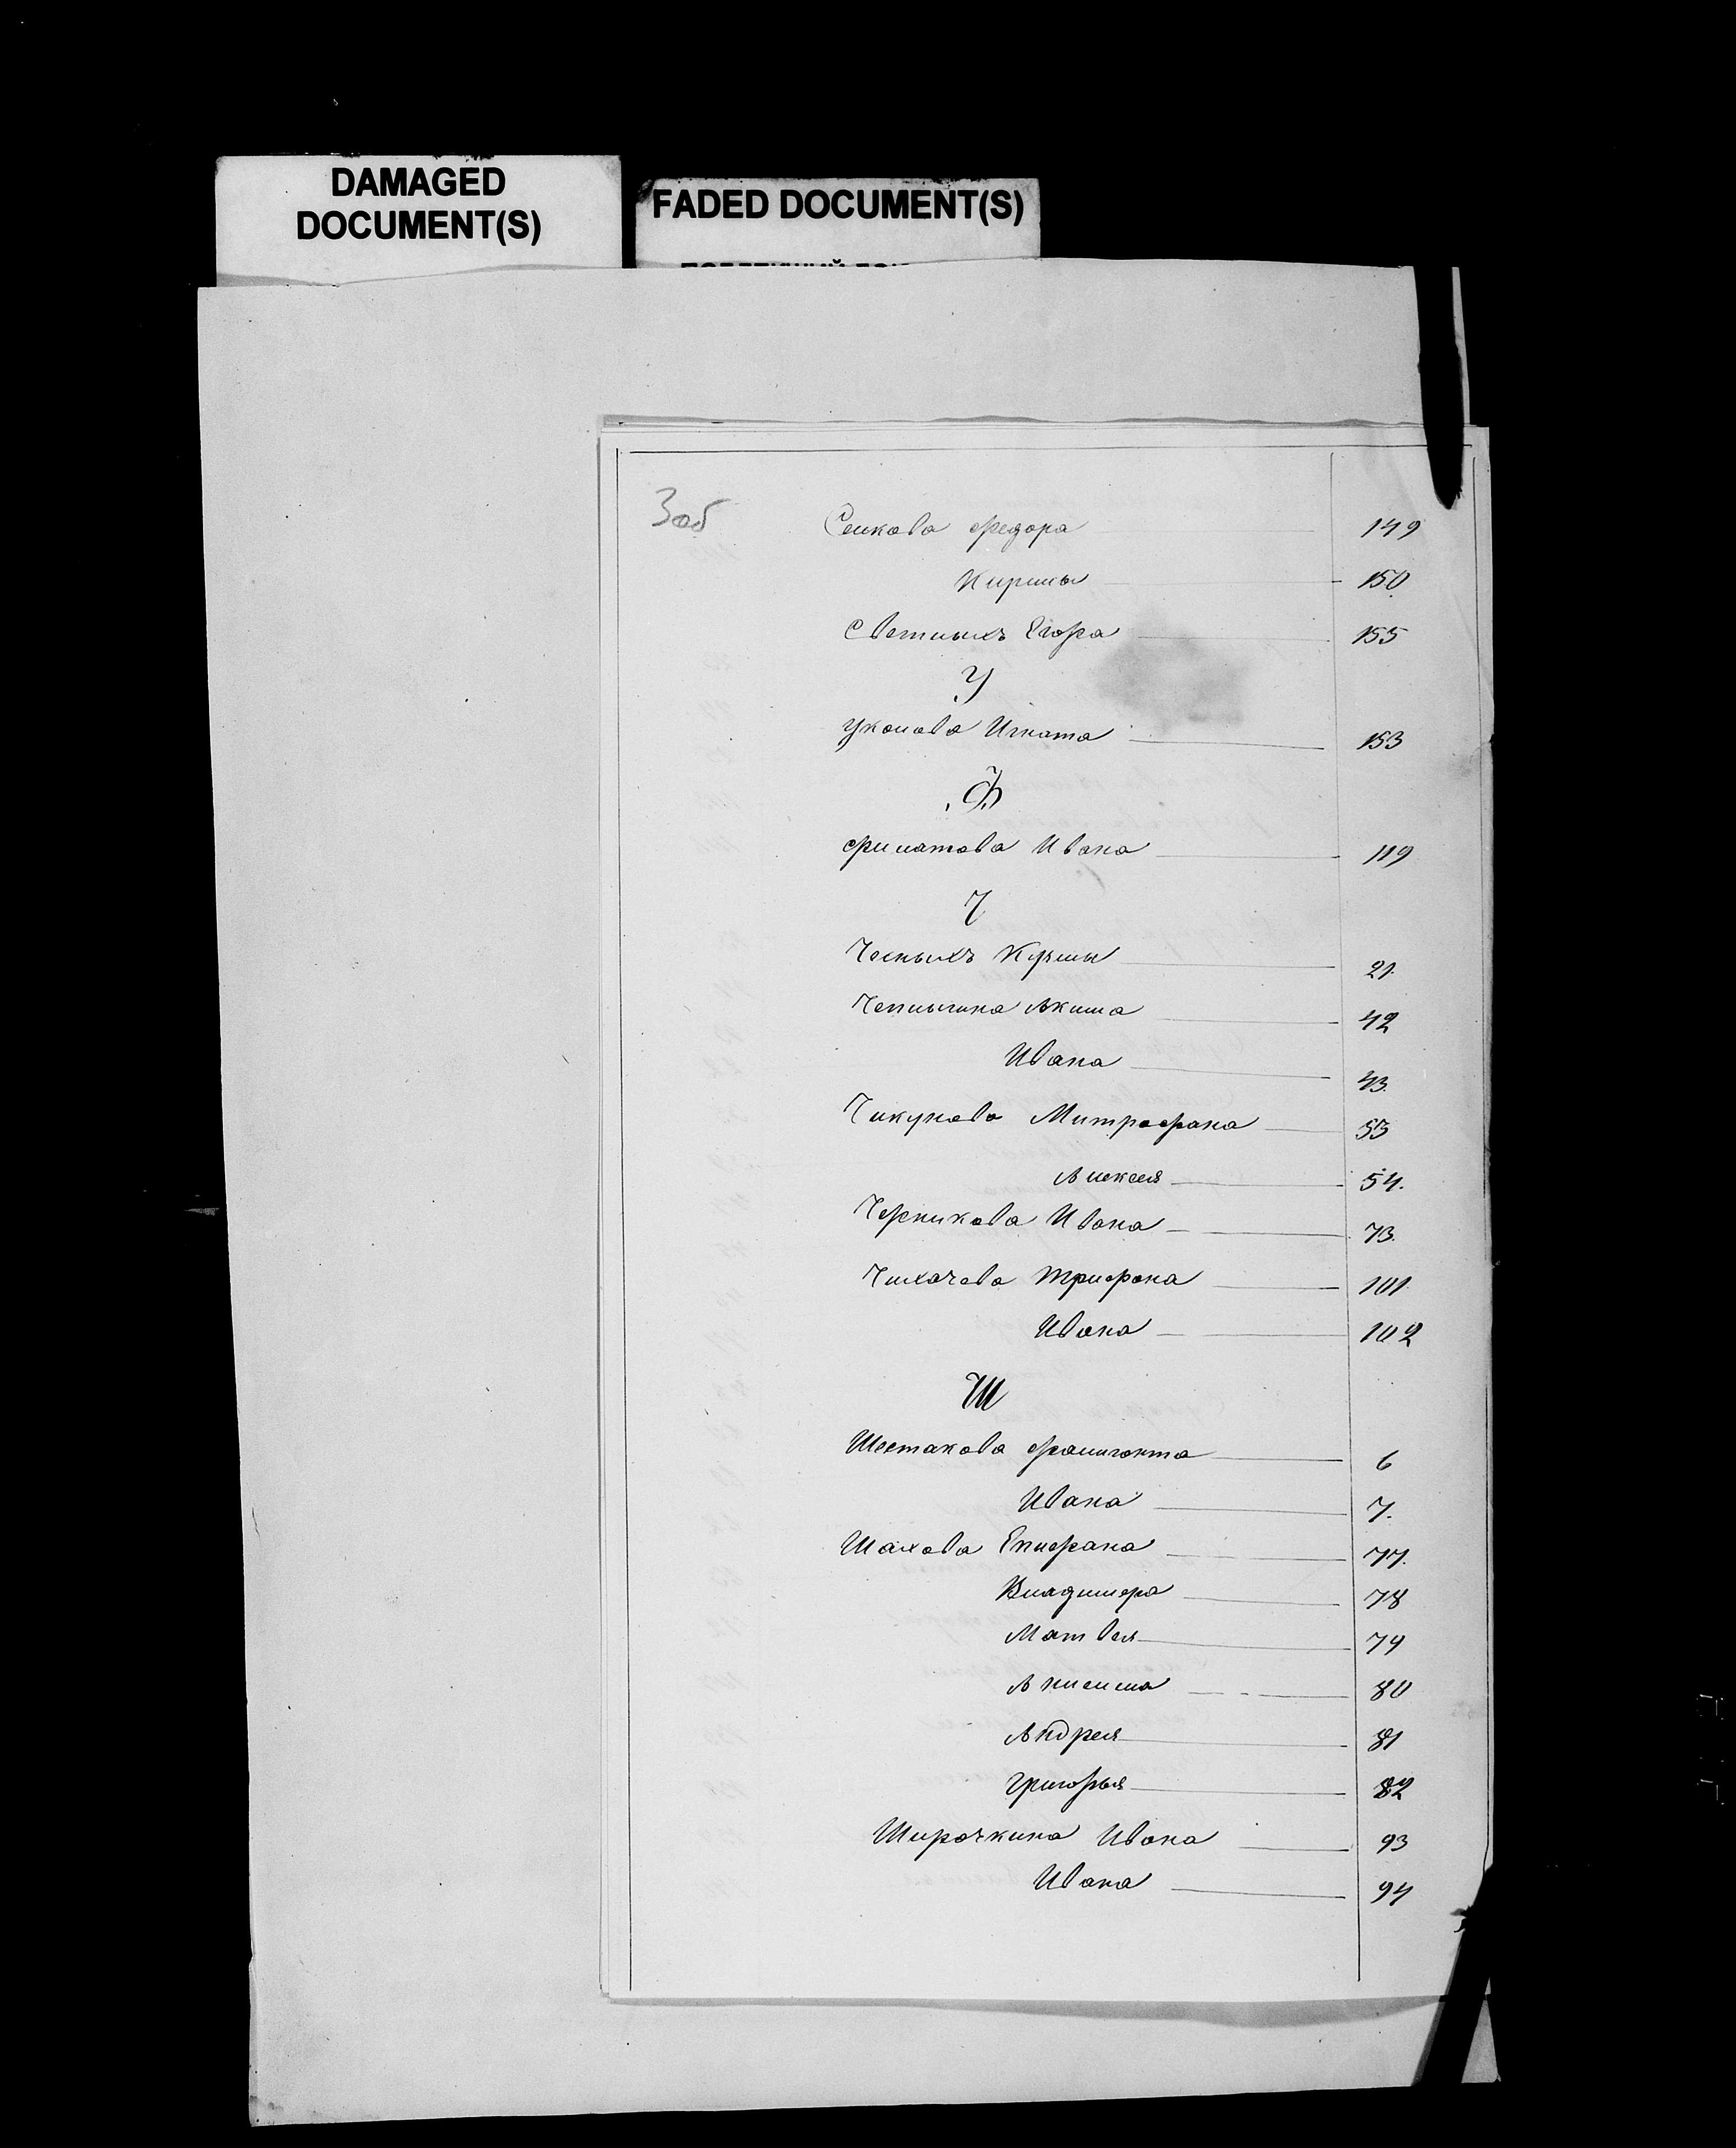 DAMAGED
DOCUMENT(S)
FADED DOCUMENT(S)
3об
Сенкова Федора 149
Кирилы 150.
Светлыхъ Егора 155
У
Уколова Игната 153
Ф
Филатова Ивана 119
Ч
Чесныхъ Кузьмы 21.
Чеплыгина Акима 42
Ивана 43.
Чикунова Митрофана 53
Алексея 54.
Черникова Ивана 73.
Чихачева Трифона 101.
Ивана 102
Ш
Шестакова Фалигонта 6
Ивана 7.
Шахова Епифана 77.
Владимера 78
Матвея 79
Анисима 80
Андрея 81
Григорья 82
Широчкина Ивана 93
Ивана 94